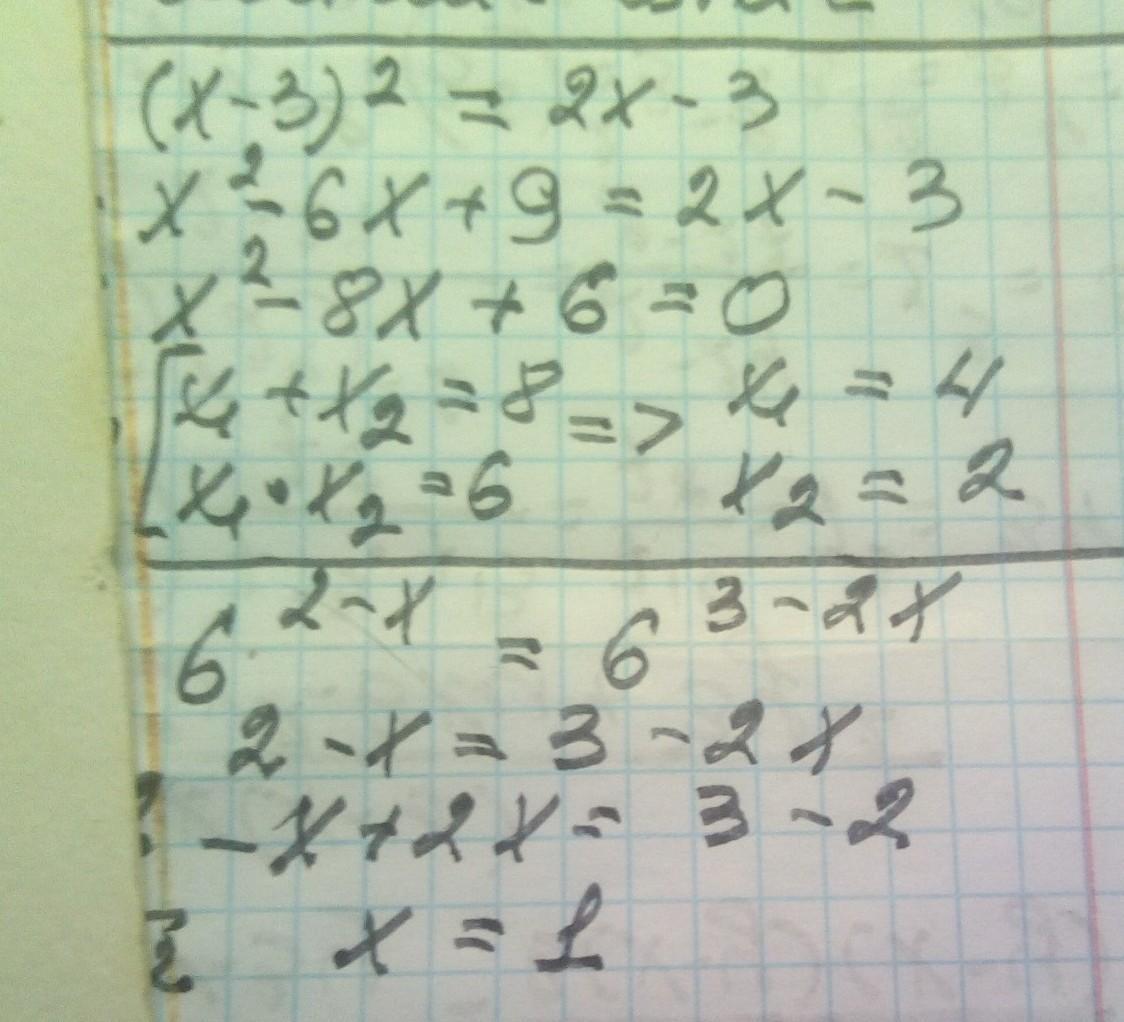 (x-3)² = 2x - 3
x² - 6x + 9 = 2x - 3
x² - 8x + 6 = 0
[x₁ + x₂ = 8 => x₁ = 4
x₁ • x₂ = 6 x₂ = 2
6^(2-x) = 6^(3-2x)
2 - x = 3 - 2x
- x + 2x = 3 - 2
x = 1